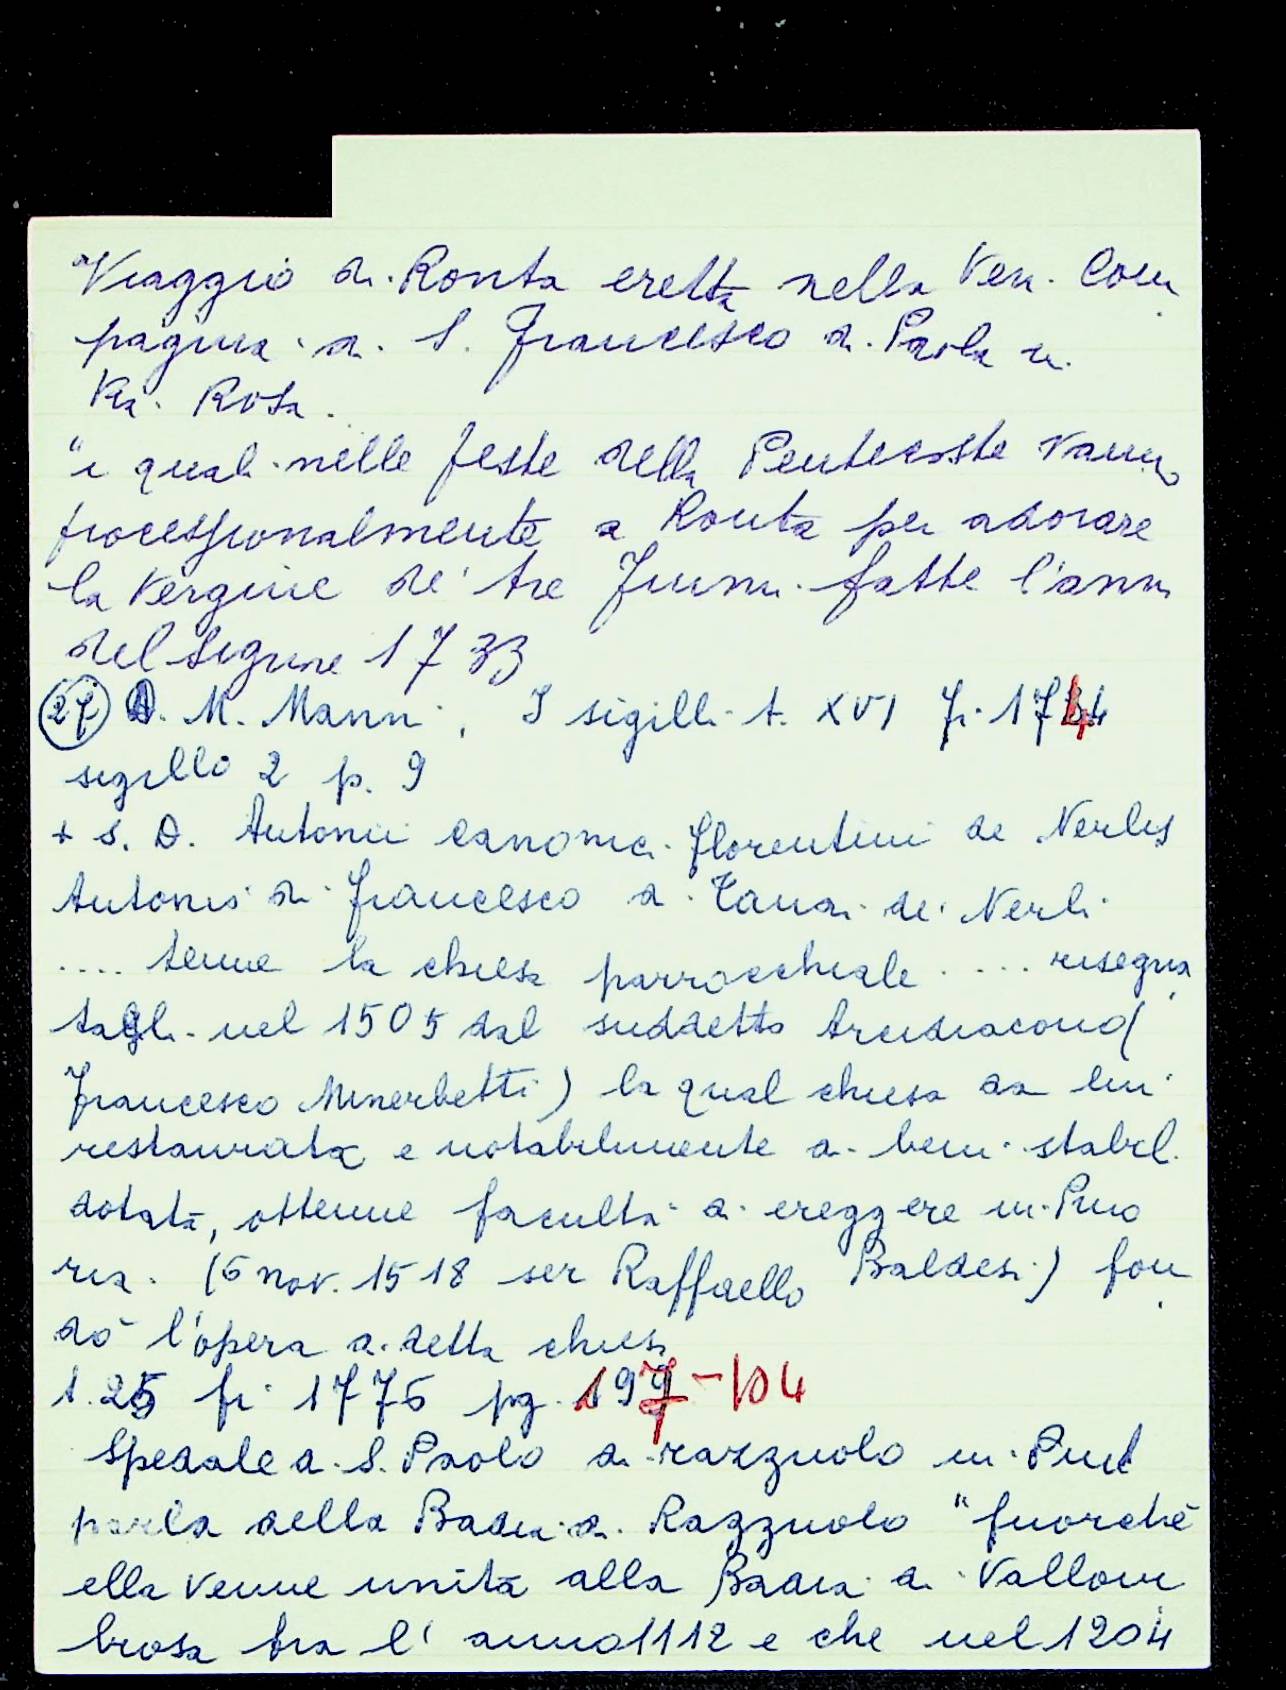 "Viaggio di Ronta eretta nella Ven. Com
pagnia di S. Francesco di Paola in
Via Rosa.
"i quali nelle feste della Pentecoste vanno
processionalmente a Ronta per adorare
la Vergine de' tre fiumi fatte l'anno
del Signore 1733
(27) D. M. Manni, I sigilli t. XVI Fi. 1744
sigillo 2 p. 9
+ S. D. Antonii canonici florentini de Nerlis
Antonio di Francesco di Tanai de' Nerli
.... tenne la chiesa parrocchiale .... risegna
tagli nel 1505 dal suddetto Arcidiacono (
Francesco Minerbetti) la qual chiesa da lui
restaurata e notabilmente di beni stabili
dotata, ottenne facultà di ereggere in Prio
ria. (6 nov. 1518 ser Raffaello Baldesi) fon
dò l'opera di detta chiesa
t. 25 fi 1775 pg. 197-104
Spedale di S. Paolo di razzuolo in
parla della Badia di Razzuolo "fuorché
ella venne unita alla Badia di Vallom
brosa tra l' anno 1112 e che nel 1204